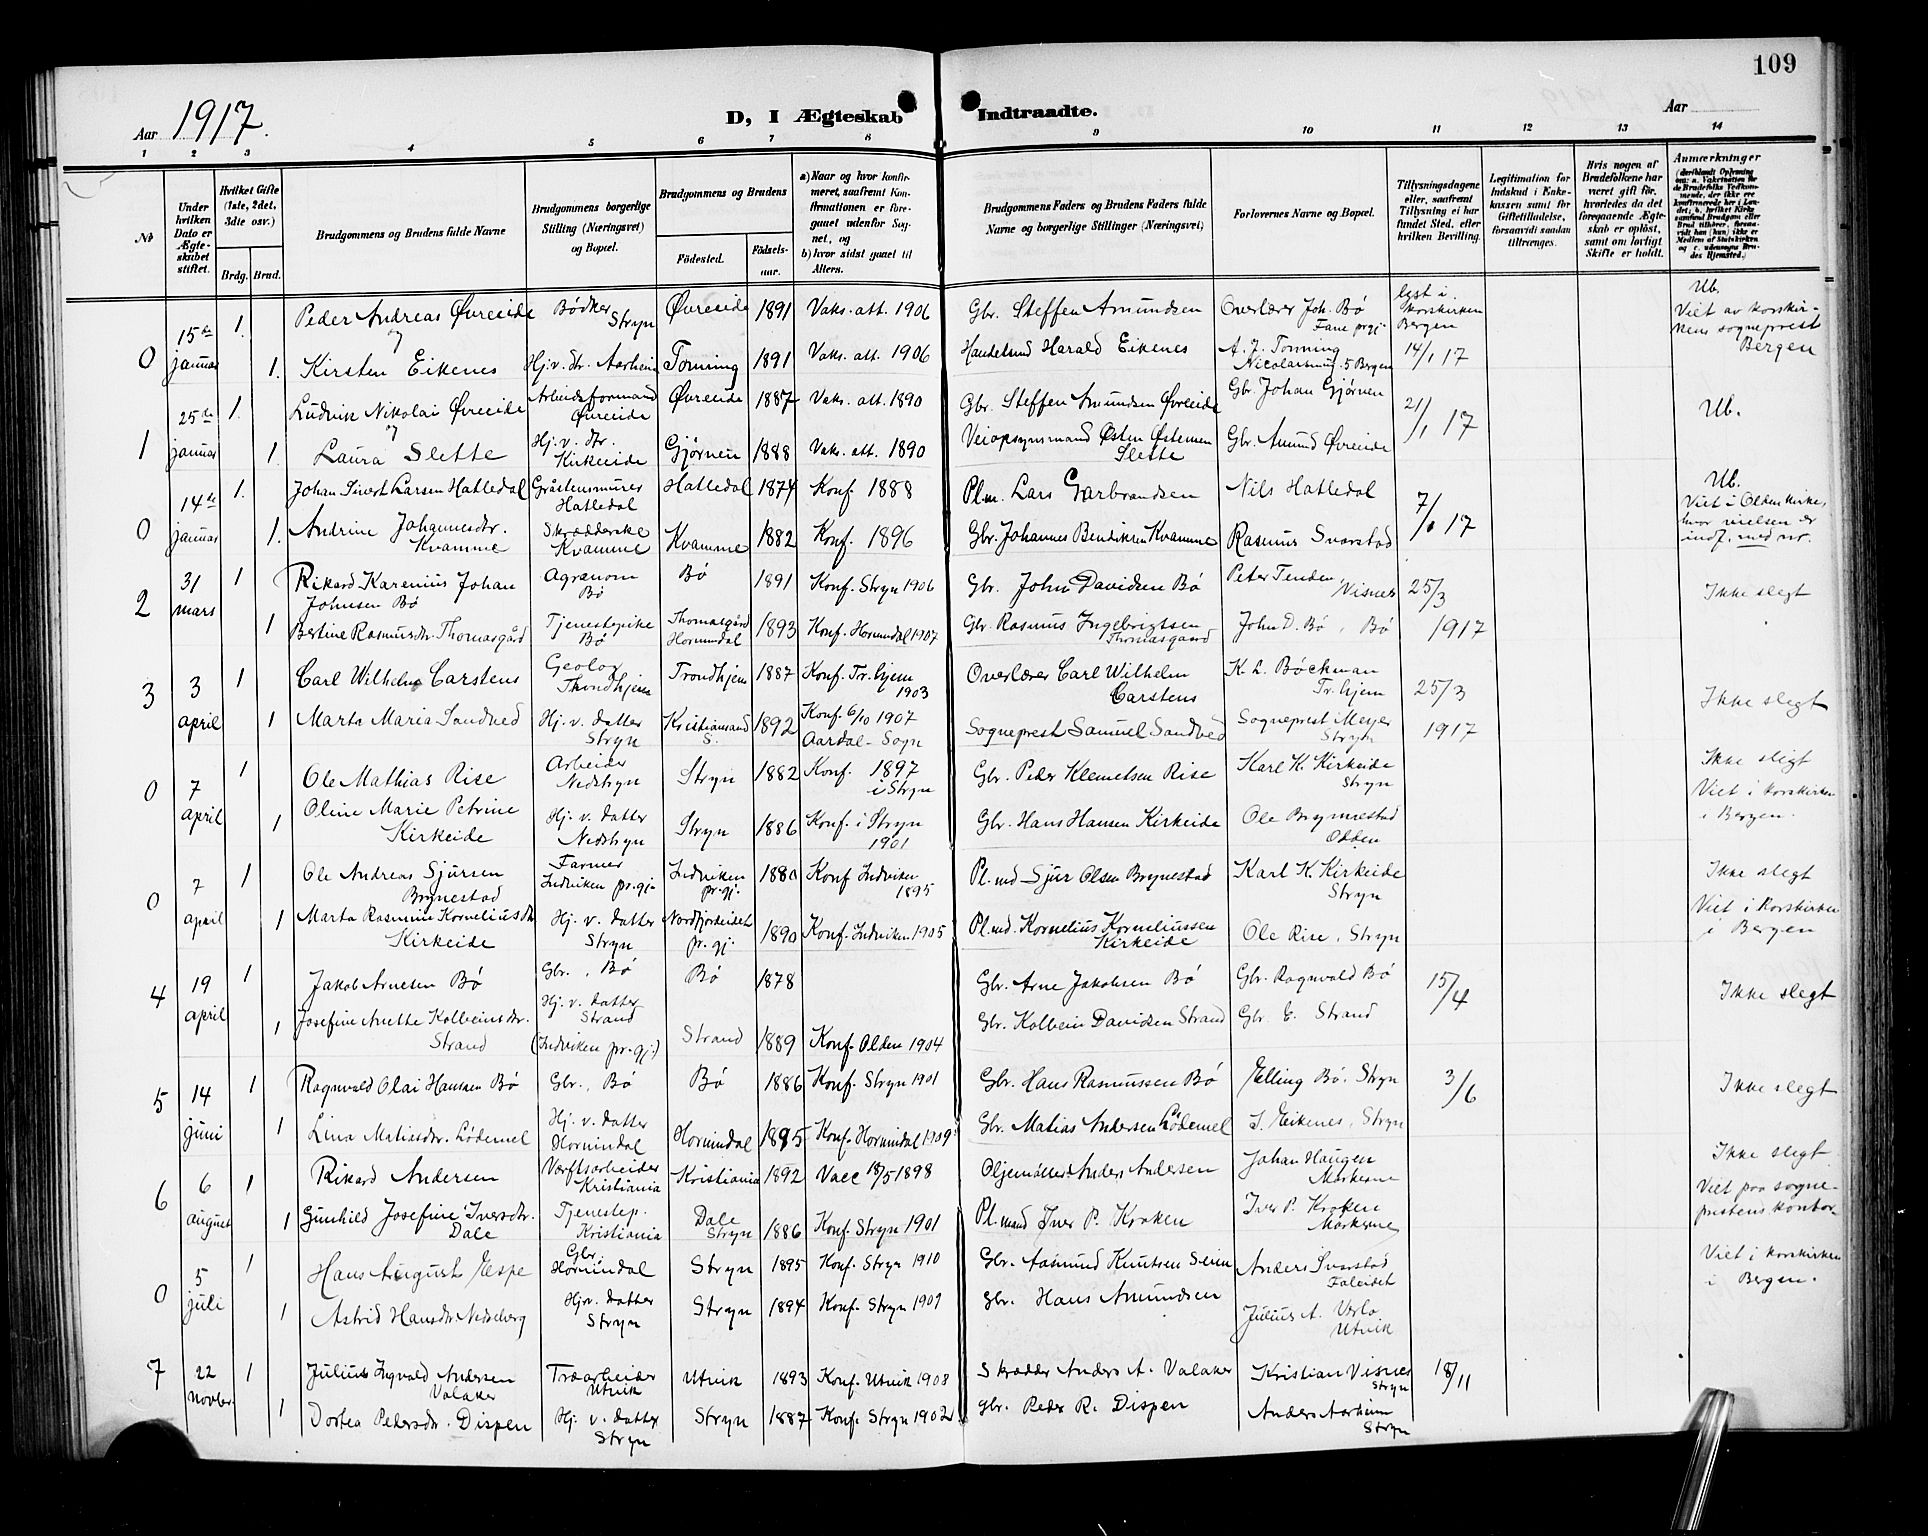 109
Aar 1917.
D, I Ægteskab Indtraadte.
Aar
1 2 3 4 5 6 7 8 9 10 11 12 13 14
No
Under hvilken Dato er Ægteskabet stiftet.
Hvilket Gifte (1ste, 2det, 3dte osv.)
Brdg. Brud.
Brudgommens og Brudens fulde Navne
Brudgommens borgerlige Stilling (Næringsvei) og Bopæl.
Brudgommens og Brudens
Fødested. Fødselsaar.
a) Naar og hvor konfirmeret, saafremt Konfirmationen er foregaaet udenfor Sognet, og
b) hvor sidst gaaet til Alters.
Brudgommens Faders og Brudens Faders fulde Navne og borgerlige Stillinger (Næringsvei)
Forlovernes Navne og Bopæl.
Tillysningsdagene eller, saafremt Tillysning ei har fundet Sted, efter hvilken Bevilling.
Legitimation for Indskud i Enkekassen samt for Giftetilladelse, forsaavidt saadan tiltrænges.
Hvis nogen af Brudefolkene har været gift før, hvorledes da det foregaaende Ægteskab er opløst, samt om lovligt Skifte er holdt.
Anmærkninger
0 15de januar 1. Peder Andreas Øvreeide Bødker Stryn Øvreeide 1891 Vaks. att. 1906 Gbr. Steffen Amundsen Overlærer Joh. Bø Fane prgj. lyst i Korskirken Bergen 14/1 17 Ub. Viet av Korskirkens sogneprest Bergen
og
1. Kirsten Eikenes Hj. v. dtr. Aarheim Tonning 1891 Vaks. att. 1906 Handelsmd Harald Eikenes A. J. Tonning Nicolaismug. 5 Bergen
1 25de januar 1. Ludvik Nikolai Øvreeide Arbeidsformand Øvreeide Øvreeide 1887 Vaks. att. 1890 Gbr. Steffen Amundsen Øvreeide Gbr. Johan Gjørven 21/1 17 Ub.
og
1. Laura Slette Hj. v. dtr. Kirkeeide Gjørven 1888 Vaks. att. 1890 Veiopsynsmand Østen Østensen Slette Gbr. Amund Øvreeide
0 14de januar 1. Johan Sivert Larsen Hatledal Gråstensmurer Hatledal Hatledal 1874 Konf. 1888 Plm. Lars Garbrandsen Nils Hatledal 7/1 17 Ub. Viet i Olden kirke, hvor vielsen er indf. med nr.
1. Andrine Johannesdtr. Kvamme Skrædderske Kvamme Kvamme 1882 Konf. 1896 Gbr. Johannes Bendiksen Kvamme Rasmus Svarstad
2 31 mars 1 Rikard Karenius Johan Johnsen Bø Agronom Bø Bø 1891 Konf. Stryn 1906 Gbr. John Davidsen Bø Peter Tenden, Visnes 25/3 1917 Ikke slegt
1 Bertine Rasmusdtr. Thomasgård Tjenestepike Bø Thomasgård Hornindal 1893 Konf. Hornindal 1907 Gbr. Rasmus Ingebrigtsen Thomasgaard John D. Bø, Bø
3 3 april 1 Carl Wilhelm Carstens Geolog Trondhjem Trondhjem 1887 Konf. Tr.hjem 1903 Overlærer Carl Wilhelm Carstens K. L. Bøckman Tr.hjem 25/3 1917 Ikke slegt
1 Marta Maria Sandved Hj. v. datter Stryn Kristiansand S. 1892 Konf. 6/10 1907 Aardal - Sogn Sogneprest Samuel Sandved Sogneprest Meyer Stryn
0 7 april 1 Ole Mathias Rise Arbeider Nedstryn Stryn 1882 Konf. 1897 i Stryn Gbr. Peder Klemetsen Rise Karl H. Kirkeide Stryn Ikke slegt Viet i Korskirken i Bergen.
1 Oline Marie Petrine Kirkeide Hj. v. datter Nedstryn Stryn 1886 Konf. i Stryn 1901 Gbr. Hans Hansen Kirkeide Ole Brynestad Odden
0 7 april 1 Ole Andreas Sjursen Brynestad Farmer Indviken pr.gj. Indviken pr.gj. 1880 Konf Indviken 1895 Pl.md Sjur Olsen Brynestad Karl H. Kirkeide Stryn Ikke slegt Viet i Korskirken i Bergen
1 Marta Rasmine Korneliusdtr. Kirkeide Hj. v. datter Stryn Nordfjordeidet pr.gj. 1890 Konf. Indviken 1905 Pl.md. Kornelius Korneliussen Kirkeide Ole Rise, Stryn
4 19 april 1 Jakob Arnesen Bø Gbr., Bø Bø 1878 Gbr. Arne Jakobsen Bø Gbr. Ragnvald Bø 15/4 Ikke slegt
1 Josefine Anette Kolbeinsdtr. Strand Hj. v. datter Strand (Indviken pr.gj.) Strand 1889 Konf. Olden 1904 Gbr. Kolbein Davidsen Strand Gbr. E. Strand
5 14 juni 1 Ragnvald Olai Hansen Bø Gbr., Bø Bø 1886 Konf. Stryn 1901 Gbr. Hans Rasmussen Bø Elling Bø, Stryn 3/6 Ikke slegt
1 Lina Matiasdtr. Lødemel Hj. v. datter Hornindal Hornindal 1895 Konf. Hornindal 1909 Gbr. Matias Andersen Lødemel I. Eikenes, Stryn
6 6 august 1 Rikard Andersen Værftsarbeider Kristiania Kristiania 1892 Vacc 18/5 1898 Oljemøller Anders Andersen Johan Haugen Markerne Ikke slegt Viet paa sogneprestens kontor
1 Gunhild Josefine Iversdtr. Dale Tjenestep. Kristiania Dale Stryn 1886 Konf. Stryn 1901 Pl.mand Iver P. Kroken Iver P. Kroken Markerne
0 5 juli 1 Hans August Espe Gbr. Hornindal Stryn 1895 Konf. Stryn 1910 Gbr. Aasmund Knutsen Seim Anders Svarstad Faleidet Viet i Korskirken i Bergen.
1 Astrid Hansdtr Nedreberg Hj.v. datter Stryn Stryn 1894 Konf. Stryn 1909 Gbr. Hans Amundsen Julius A. Verlo Utvik
7 22 novber 1 Julius Ingvald Andersen Valaker Træarbeider Utvik Utvik 1893 Konf. Utvik 1908 Skrædder Anders A. Valaker Kristian Visnes Stryn 18/11
1 Dortea Pedersdtr. Dispen Hj. v. datter Stryn Stryn 1887 Konf. Stryn 1902 Gbr. Peder R. Dispen Anders Aarheim Stryn